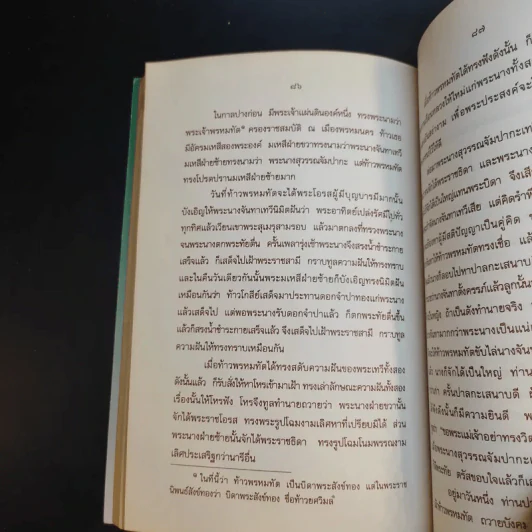 ๘๖
ในกาลปางก่อน มีพระเจ้าแผ่นดินองค์หนึ่ง ทรงพระนามว่า
พระเจ้าพรหมทัต* ครองราชสมบัติ ณ เมืองพรหมนคร ท้าวเธอ
มีอัครมเหสีสองพระองค์ มเหสีฝ่ายขวาทรงนามว่าพระนางจันทาเทวี
มเหสีฝ่ายซ้ายทรงนามว่า พระนางสุวรรณจัมปากะ แต่ท้าวพรหมทัต
ทรงโปรดปรานมเหสีฝ่ายซ้ายมาก
วันที่ท้าวพรหมทัตจะได้พระโอรสผู้มีบุญบารมีมากนั้น
บังเอิญให้พระนางจันทาเทวีนิมิตฝันว่า พระอาทิตย์เปล่งรัศมีไปทั่ว
ทุกทิศแล้วเวียนเขาพระสุเมรุสามรอบ แล้วมาตกลงที่ทรวงพระนาง
จนพระนางตกพระทัยตื่น ครั้นเพลารุ่งเช้าพระนางจึงสรงน้ำชำระกาย
เสร็จแล้ว ก็เสด็จไปเฝ้าพระราชสามี กราบทูลความฝันให้ทรงทราบ
และในคืนวันเดียวกันนั้นพระมเหสีฝ่ายซ้ายก็บังเอิญทรงนิมิตฝัน
เหมือนกันว่า ท้าวโกสีย์เสด็จมาประทานดอกจำปาทองแก่พระนาง
แล้วเสด็จไป แต่พอพระนางรับดอกจำปาแล้ว ก็ตกพระทัยตื่นขึ้น
แล้วก็สรงน้ำชำระกายเสร็จแล้ว จึงเสด็จไปเฝ้าพระราชสามี กราบทูล
ความฝันให้ทรงทราบเหมือนกัน
เมื่อท้าวพรหมทัตได้ทรงสดับความฝันของพระเทวีทั้งสอง
ดังนั้นแล้ว ก็รับสั่งให้หาโหรเข้ามาเฝ้า ทรงเล่าลักษณะความฝันทั้งสอง
เรื่องนั้นให้โหรฟัง โหรจึงทูลทำนายถวายว่า พระนางฝ่ายขวานั้น
จักได้พระราชโอรส ทรงพระรูปโฉมงามเลิศหาที่เปรียบมิได้ ส่วน
พระนางฝ่ายซ้ายนั้นจักได้พระราชธิดา ทรงรูปโฉมโนมพรรณงาม
เลิศประเสริฐกว่านารีอื่น
* ในที่นี้ว่า ท้าวพรหมทัต เป็นบิดาพระสังข์ทอง แต่ในพระราช
นิพนธ์สังข์ทองว่า บิดาพระสังข์ทอง ชื่อท้าวยศวิมล
๘๗
ท้าวพรหมทัตได้ทรงฟังดังนั้น ก็
ให้ใหม่แก่พระนางทั้งส
เพื่อพระประสงค์จะ
นางสุวรรณจัมปากะเท
ได้พระราชธิดา และพระนาง
ได้เป็นใหญ่แทนพระบิดา จึงเสี
จันทาเทวีเสีย แต่คิดรำพึ
ผู้มีสติปัญญาเป็นคู่คิด
ท้าวพรหมทัตทรงเชื่อ แล้
ก็ตอบไปหาปาลกะเสนาบ
ตั้งครรภ์แล้วลูกนั้น
หญิง ถ้าเป็นดังทำนายจริง
มากกว่าพระนางเป็นแน่
ให้ท้าวพรหมทัตขับไล่นางจัน
นายก็จักได้เป็นใหญ่ ท่าน
ครั้นปาลกะเสนาบดี
ดังนั้นก็มีความยินดี
ขอพระแม่เจ้าอย่าทรงวิต
นางสุวรรณจัมปากะเ
ตรัสขอบใจแล้วก็เส
อยู่มาวันหนึ่ง ท่าน
ท้าวพรหมทัต ถวายบังค